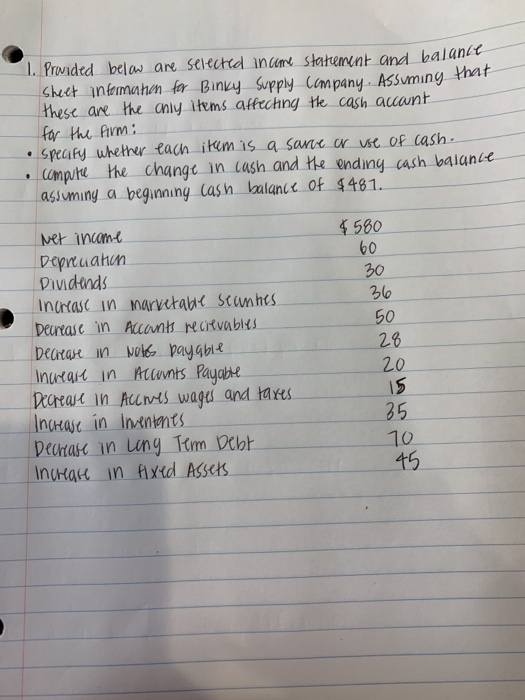 1. Provided below are selected income statement and balance
sheet information for Binky Supply Company. Assuming that
these are the only items affecting the cash account
for the firm:
• specify whether each item is a source or use of cash.
• compute the change in cash and the ending cash balance
assuming a beginning cash balance of $487.
Net income $580
Depreciation 60
Dividends 30
Increase in marketable securities 36
Decrease in Accounts recievables 50
Decrease in Notes payable 28
Increase in Accounts Payable 20
Decrease in Accrues wages and taxes 15
Increase in Inventories 35
Decrease in Long Term Debt 70
Increase in fixed Assets 45